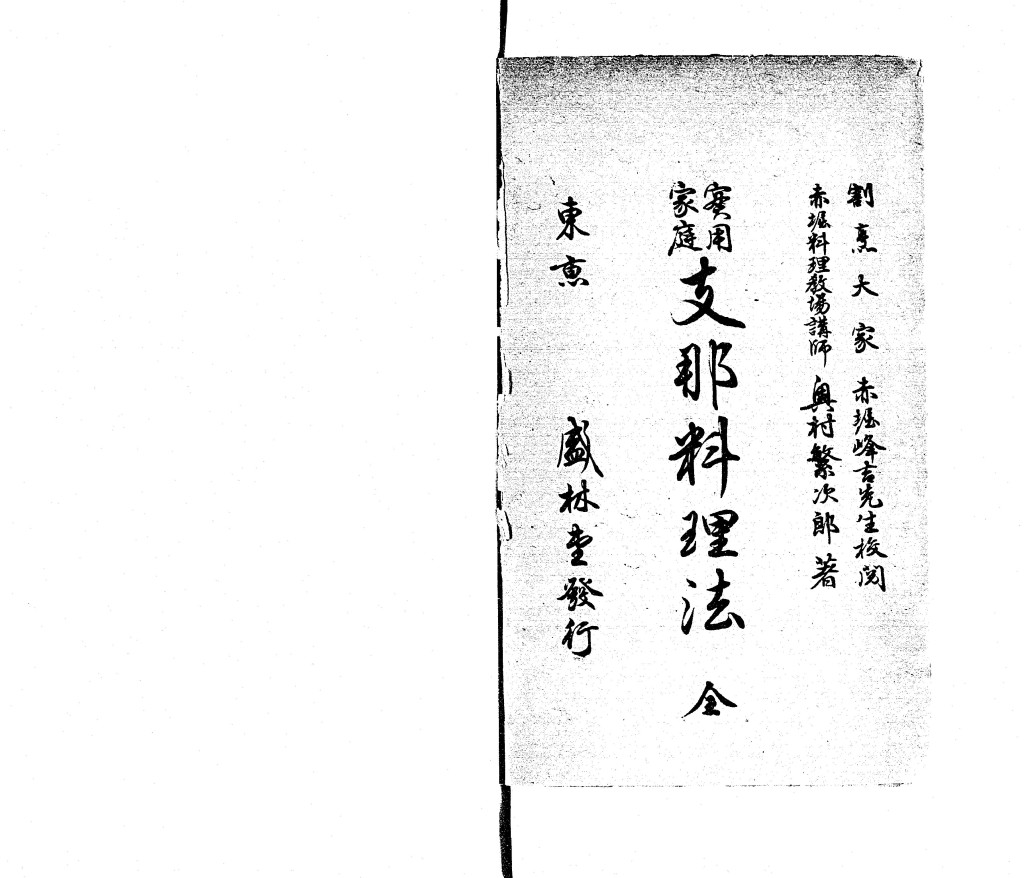 割烹大家 赤堀峰吉先生校閲
赤堀料理教場講師 奥村繁次郎 著
實用
家庭
支那料理法 全
東京 盛林堂發行